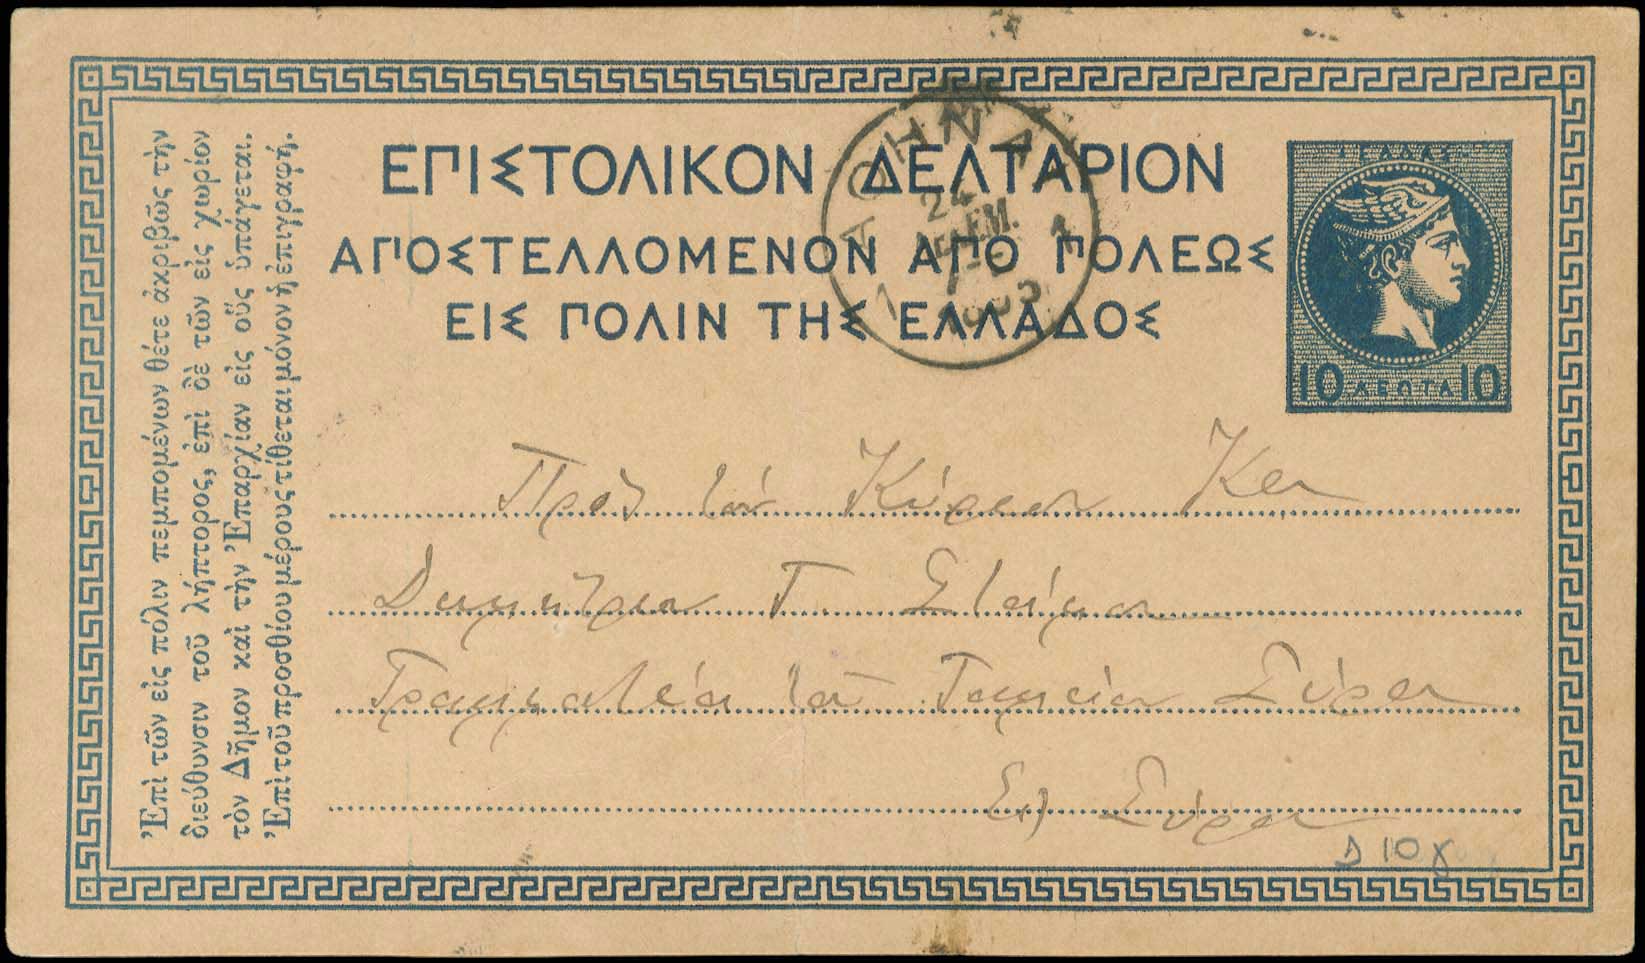 Ἐπὶ τῶν εἰς πόλιν πεμπομένων θέτε ἀκριβῶς τὴν
διεύθυνσιν τοῦ λήπτορος, ἐπὶ δὲ τῶν εἰς χωρίον
τὸν Δῆμον καὶ τὴν Ἐπαρχίαν εἰς οὓς ὑπάγεται.
Ἐπὶ τοῦ προσθίου μέρους τίθεται μόνον ἡ ἐπιγραφή.
ΕΠΙΣΤΟΛΙΚΟΝ ΔΕΛΤΑΡΙΟΝ
ΑΠΟΣΤΕΛΛΟΜΕΝΟΝ ΑΠΟ ΠΟΛΕΩΣ
ΕΙΣ ΠΟΛΙΝ ΤΗΣ ΕΛΛΑΔΟΣ
ΑΘΗΝΑΙ
24
ΔΕΚΕΜ.
1 1
10 ΛΕΠΤΑ 10
Πρὸς τὸν Κύριον
Δημήτριον Γ.
Γραμματέα τοῦ Ταμείου Σύρου
Σύρον
Δ 10 γ